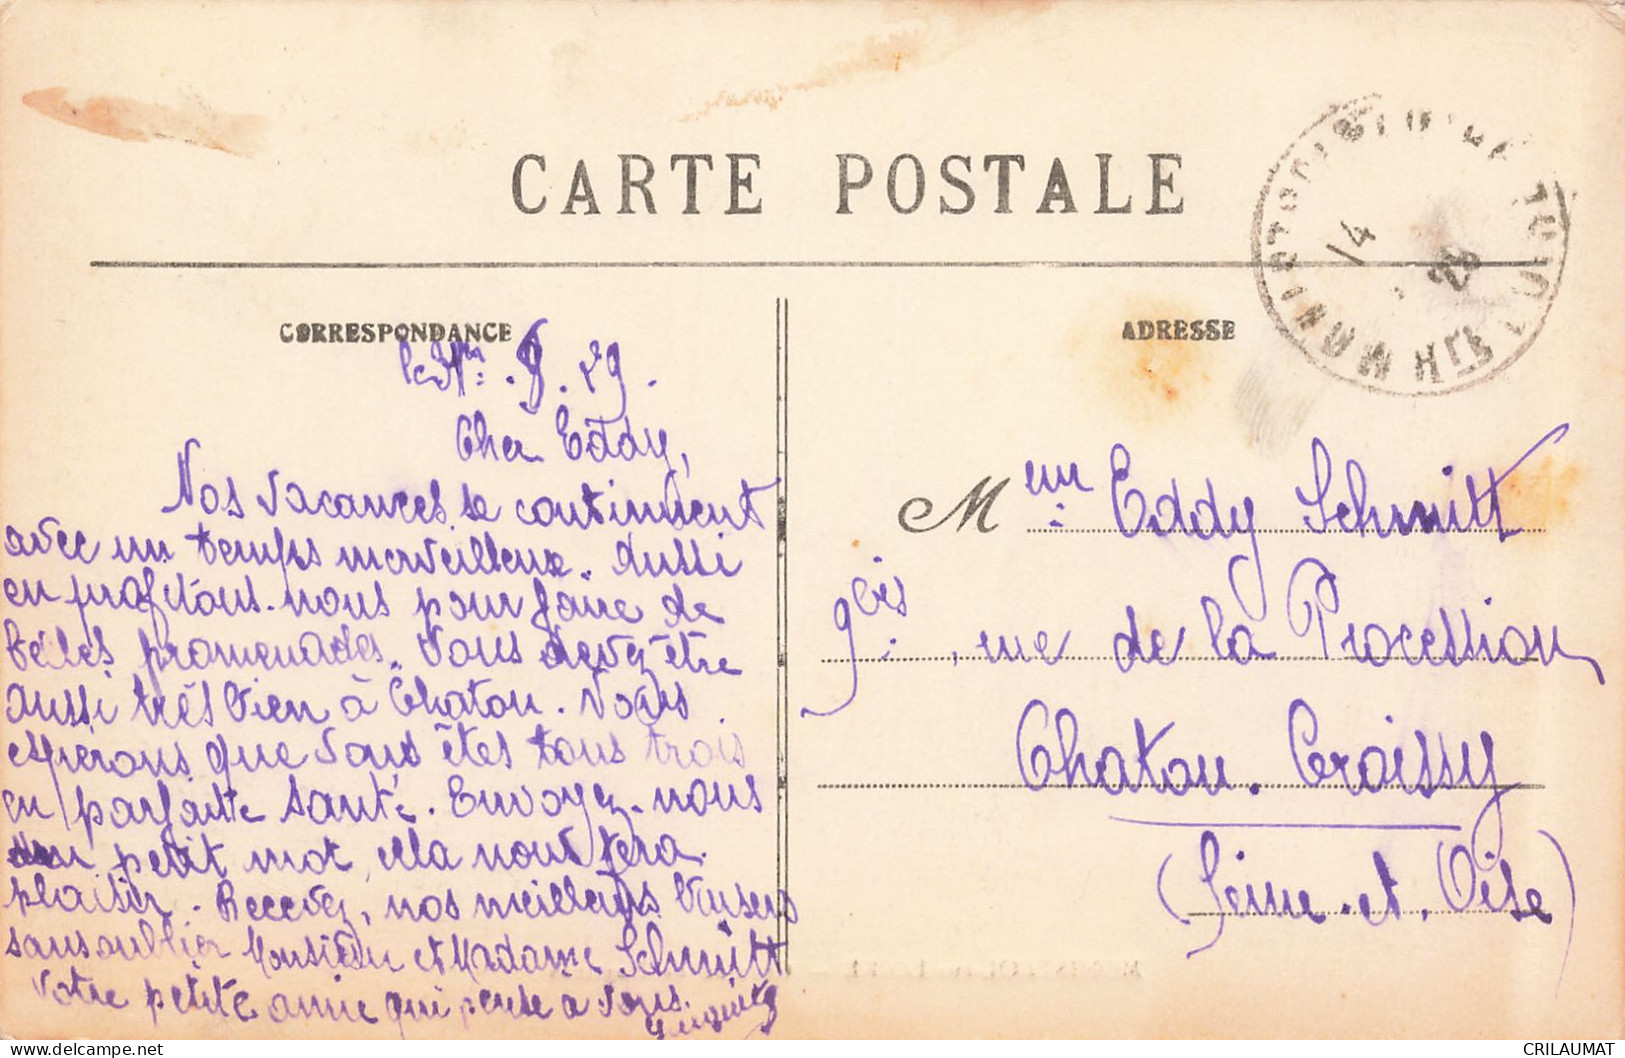 CARTE POSTALE
CORRESPONDANCE
ADRESSE
14
29
MONISTROL
Hte
LOIRE
8.29.
Cher Eddy,
Nos vacances se continuent
avec un temps merveilleux. Aussi
en profitons-nous pour faire de
belles promenades. Vous devez être
aussi très bien à Chatou. Nous
espérons que vous êtes tous trois
en parfaite santé. Envoyez-nous
un petit mot, cela nous fera
plaisir. Recevez, nos meilleurs baisers
sans oublier Monsieur et Madame Schmitt
Votre petite amie qui pense à vous.
M eur: Eddy Schmitt
9 bis:, rue de la Procession
Chatou. Croissy
(Seine-et-Oise)
CRILAUMAT